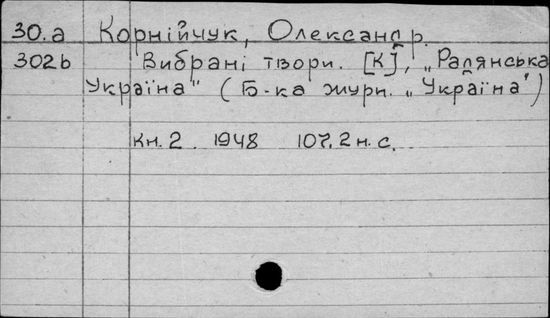 30.a Корнійчук, Олександр.
302b Вибрані твори. [К], „Радянська
Україна" (Б-ка журн. „Україна")
Кн. 2 1948 107, 2 н. с.